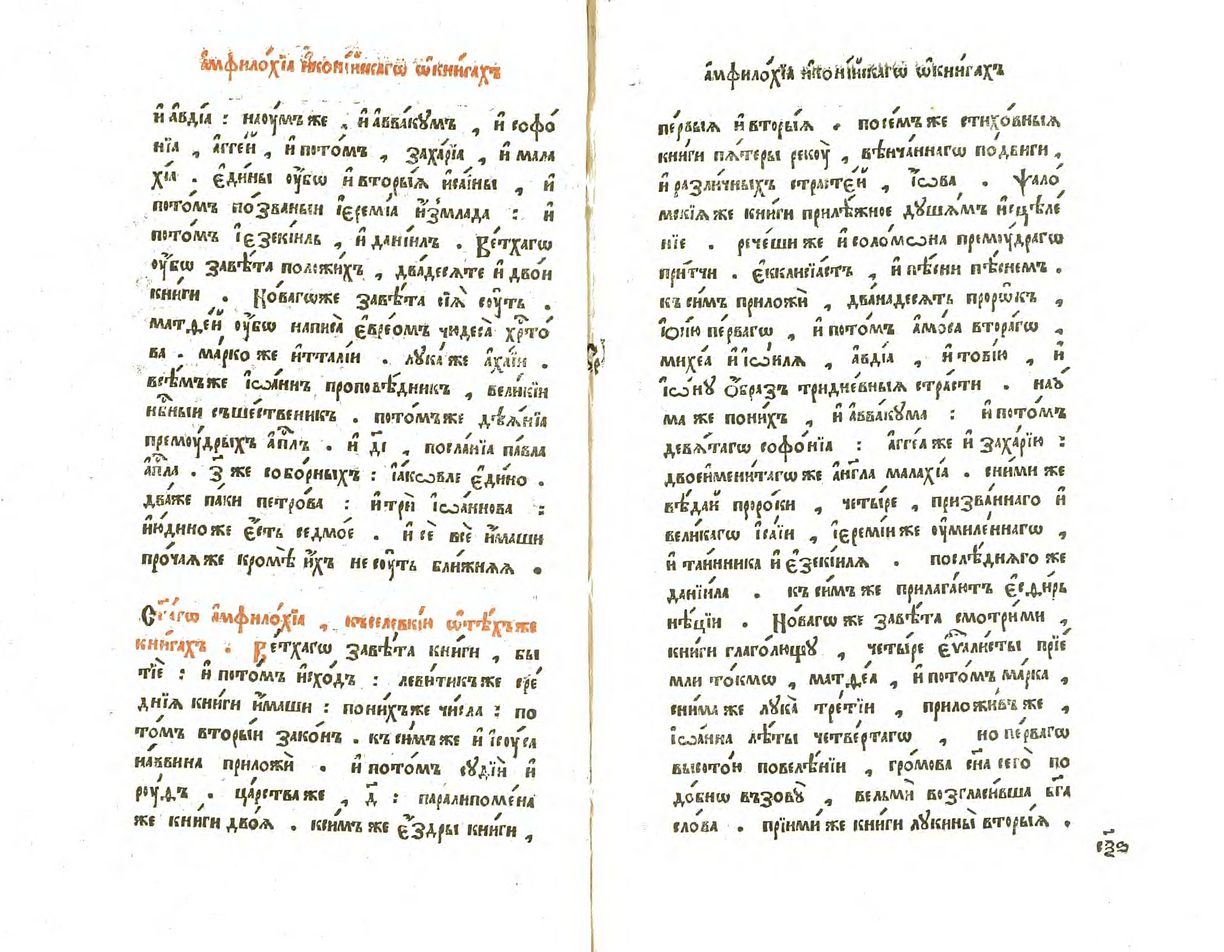 а҆мфило́хїа и҆коні́йскагѡ ѡ҆кни́гахъ
и҆ а҆вді́а : наꙋ́мъ же , и҆ а҆вваку́мъ , и҆ софо́
нїа , а҆гге́й , и҆ пото́мъ , заха́рїа , и҆ мала
хі́а . є҆ди́ны ᲂу҆́бѡ и҆ вторы́ѧ и҆са́їны , и҆
пото́мъ по́званыи і҆еремі́а и҆́змлада : и҆
пото́мъ і҆езекі́иль , и҆ данїи́лъ . Ве́тхагѡ
ᲂу҆́бѡ завѣ́та положи́хъ , два́десѧте и҆ дво́и
кни́ги . Но́вагѡже завѣ́та сїѧ̀ сꙋ́ть .
матѳе́й ᲂу҆́бѡ написа̀ є҆вре́омъ чюдеса̀ хрⷭ҇то́
ва . ма́рко же и҆тталі́и . лука́ же а҆ха́їи .
всѣ́мъ же і҆ѡа́ннъ проповѣ́дникъ , вели́кїи
нбⷭ҇ныи съше́ственикъ . пото́мъ же дѣѧ́нїа
премꙋ́дрыхъ а҆пⷭ҇лъ . и҆ д҃і , посла́нїа па́вла
а҆пⷭ҇ла . з҃ же собо́рныхъ : і҆а́кѡвле є҆ди́но .
два́же па́ки петро́ва : и҆ трѝ і҆ѡа́ннова :
и҆ю́дино же є҆́сть седмо́е . и҆ сѐ всѐ и҆́маши
про́чаѧ же кромѣ̀ и҆́хъ не сꙋ́ть бли́жнѧѧ .
Ст҃а́гѡ а҆мфило́хїа , къселевкі́и ѡ҆тѣ́хъже
кни́гахъ . Ве́тхагѡ завѣ́та кни́ги , бы
тїѐ : и҆ пото́мъ и҆схо́дъ : леви́тикъ же сре́
днїѧ кни́ги и҆́маши : по ни́хъ же чи́сла : по
то́мъ вторы́и зако́н . къ си́мъ же и҆ і҆сꙋ́са
наѵ́вина приложѝ . и҆ пото́мъ сꙋді́и и҆
рꙋ́ѳъ . ца́рства же , д҃ : паралипоме́на
же кни́ги дво́ѧ . ксѝмъ же є҆́здры кни́ги ,
а҆мфило́хїа и҆коні́йскагѡ ѡ҆кни́гахъ
пе́рвыѧ и҆ вторы́ѧ . по се́мъ же стихо́вныѧ
кни́ги пѧ́теры рекꙋ̀ , вѣнча́ннагѡ по́двиги ,
и҆ разли́чныхъ страсте́й , і҆́ѡва . Ѱало́
мскїѧ же кни́ги прилѣ́жное душѧ́мъ и҆сцѣле́
нїе . рече́ши же и҆ соломѡ́на премꙋ́драгѡ
при́тчи . є҆кклисїа́стъ , и҆ пѣ́сни пѣ́снемъ .
къ си́мъ приложѝ , двана́десѧть прорѡ́къ ,
і҆ѡ́сїю пе́рвагѡ , и҆ пото́мъ а҆мо́са втора́гѡ ,
михе́а и҆ і҆ѡи́лѧ , а҆вді́а , и҆ тові́ю , и҆
і҆ѡ́ну ѻ҆́бразъ тридне́вныѧ стра́сти . наꙋ́
ма же по ни́хъ , и҆ а҆вваку́ма : и҆ пото́мъ
девѧ́тагѡ софо́нїа : а҆гге́а же и҆ заха́рїю :
двоеи҆мени́тагѡ же а҆́нгла малахі́а . сни́ми же
вѣ́дай проро́ки , четы́ре , призва́ннаго и҆
вели́кагѡ і҆са́їи , і҆еремі́и же ᲂу҆миле́ннагѡ ,
и҆ та́инника и҆ є҆зекі́илѧ . послѣ́днѧго же
данїи́ла . къ си́мъ же прилага́ютъ є҆сѳи́рь
нѣ́цїи . Но́вагѡ же завѣ́та смотри́ми ,
кни́ги глаго́лющу , четы́ре є҆ѵⷢ҇али́сты прїе́
мли то́кмѡ , матѳе́а , и҆ пото́мъ ма́рка ,
сни́ма же лука̀ тре́тїи , приложи́въ же ,
і҆ѡа́нна лѣ́ты четве́ртагѡ , но пе́рвагѡ
высото́ю повелѣ́нїи , гро́мова сн҃а сего̀ по
до́бнѡ възовꙋ̀ , вельмѝ возгласи́вша бг҃а
сло́ва . прїими́ же кни́ги луки́ны вторы́ѧ .